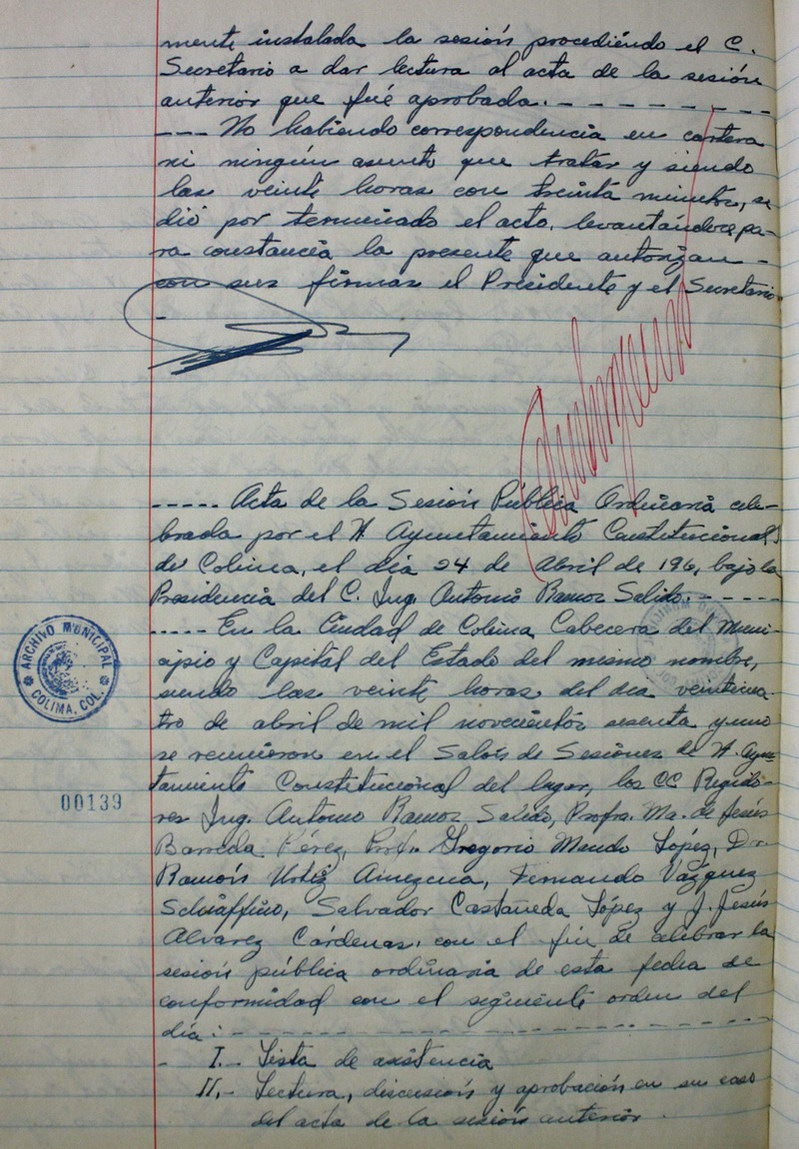 mente instalada la sesión procediendo el C.
Secretario a dar lectura al acta de la sesión
anterior que fué aprobada. - - - - - - - -
- - - No habiendo correspondencia en cartera
ni ningún asunto que tratar y siendo
las veinte horas con treinta minutos, se
dió por terminado el acto, levantándose pa-
ra constancia la presente que autorizan -
con sus firmas el Presidente y el Secretario
-
- - - - - Acta de la Sesión Pública Ordinaria cele-
brada por el H. Ayuntamiento Constitucional
de Colima, el día 24 de Abril de 196, bajo la
Presidencia del C. Ing. Antonio Ramos Salido. - - - - -
- - - - - En la Ciudad de Colima Cabecera del Muni-
cipio y Capital del Estado del mismo nombre,
siendo las veinte horas del día veinticua-
tro de abril de mil novecientos sesenta y uno
se reunieron en el Salón de Sesiones de H. Ayun-
tamiento Constitucional del lugar, los CC Regido-
res Ing. Antonio Ramos Salido, Profra. Ma. de Jesús
Barreda Pérez, Prof. Gregorio Mendo López, Dr.
Ramón Ortiz Amezcua, Fernando Vázquez
Schiaffino, Salvador Castañeda López y J. Jesús
Alvarez Cárdenas, con el fin de celebrar la
sesión pública ordinaria de esta fecha de
conformidad con el siguiente orden del
día: - - - - - - - - - - - - - - - - - - -
- I.- Lista de asistencia
II.- Lectura, discusión y aprobación en su caso
del acta de la sesión anterior.
ARCHIVO MUNICIPAL
COLIMA, COL.
00139